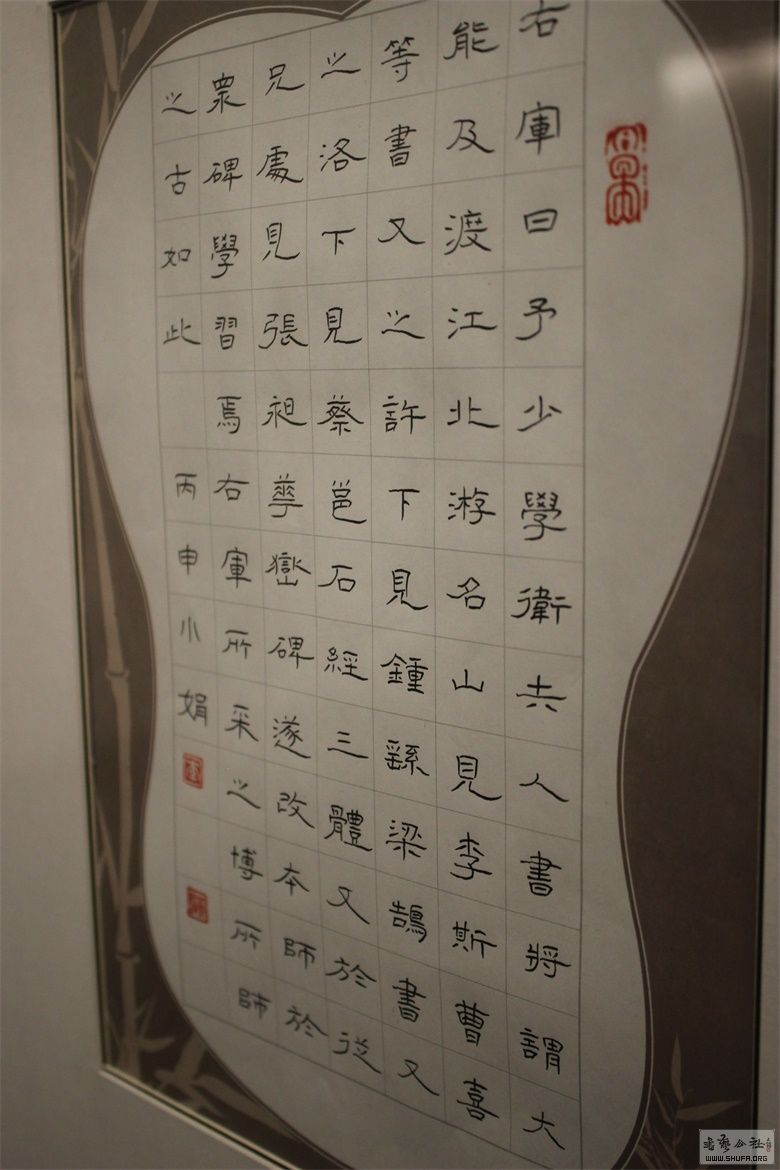 右軍曰予少學衛夫人書將謂大
能及渡江北游名山見李斯曹喜
等書又之許下見鍾繇梁鵠書又
之洛下見蔡邕石經三體又於從
兄處見張昶華嶽碑遂改本師於
衆碑學習焉右軍所采之博所師
之古如此 丙申小娟
书艺公社
WWW.SHUFA.ORG